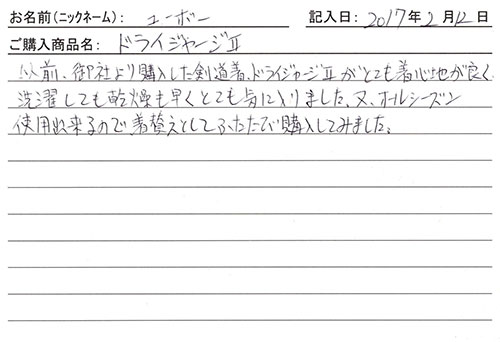 お名前(ニックネーム): ユーボー 記入日: 2017年2月12日
ご購入商品名: ドライジャージⅡ
以前、御社より購入した剣道着、ドライジャージⅡがとても着心地が良く、
洗濯しても乾燥も早くとても気に入りました。又、オールシーズン
使用出来るので着替えとしてふたたび購入してみました。